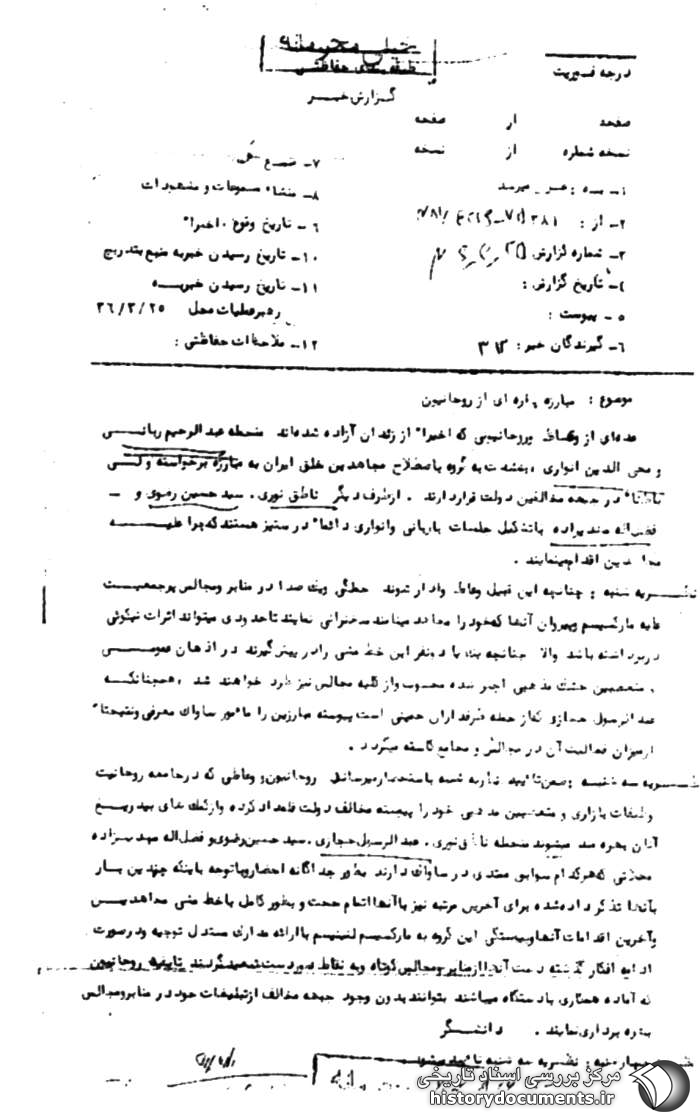 خیلی محرمانه
طبقه‌بندی حفاظتی
درجه فوریت
گزارش خبر
صفحه از صفحه
نسخه شماره از نسخه
۱- به : میرسد
۲- از : ۳۸۱
۳- شماره گزارش
۴- تاریخ گزارش :
۵- پیوست :
۶- گیرندگان خبر : ۳۱۲
۷- منبع
۸- منشاء مسموعات و مشهودات
۹- تاریخ وقوع : اخیرا"
۱۰- تاریخ رسیدن خبر به منبع بتدریج
۱۱- تاریخ رسیدن خبر به
رهبر عملیات محل ۳۶/۳/۲۵
۱۲- ملاحظات حفاظتی :
موضوع : مبارزه پاره ای از روحانیون
عده‌ای از وعاظ و روحانیونی که اخیرا" از زندان آزاده شده‌اند منجمله عبدالرحیم ربانی
و محی الدین انواری بشدت به گروه باصطلاح مجاهدین خلق ایران به مبارزه برخواسته ولی
باطنا" در جبهه مخالفین دولت قرار دارند . از طرف دیگر ناطق نوری ، سید حسین رضوی و
فضل‌اله مهدیزاده با تشکیل جلسات با ربانی و انواری دائما" در ستیز هستند که چرا علیه
مجاهدین اقدام مینمایند .
نظریه شنبه : چنانچه این قبیل وعاظ وادار شوند همگی و یک صدا در منابر و مجالس پرجمعیت
علیه مارکسیسم و پیروان آنها که خود را مجاهد مینامند سخنرانی نمایند تا حدودی میتواند اثرات نیکوئی
در بر داشته باشد والا چنانچه یک یا دو نفر این خط مشی را در پیش گیرند در اذهان عمومی
و متعصبین خشک مذهبی اجیر شده محسوب و از کلیه مجالس نیز طرد خواهند شد ، همچنانکه
عبدالرسول حجازی که از جمله طرفداران خمینی است پیوسته مبارزین را مامور ساواک معرفی و نتیجتا"
از میزان فعالیت آن در مجالس و مجامع کاسته میگردد .
نظریه سه شنبه : ضمن تائید نظریه شنبه باستحضار میرساند روحانیون و وعاظی که در جامعه روحانیت
و طبقات بازاری و متعصبین مذهبی خود را پیوسته مخالف دولت قلمداد کرده و از کمک های بیدریغ
آنان بهره مند میشوند منجمله ناطق نوری ، عبدالرسول حجازی ، سید حسین رضوی و فضل‌اله مهدیزاده
محلاتی که هر کدام سوابق ممتدی در ساواک دارند بطور جداگانه احضار و با توجه باینکه چندین بار
بآنها تذکر داده شده برای آخرین مرتبه نیز با آنها اتمام حجت و بطور کامل با خط مشی مجاهدین
و آخرین اقدامات آنها و وابستگی این گروه به مارکسیسم لنینیسم با ارائه مدارک مستدل توجیه و در صورت
ادامه افکار گذشته دست آنها از منابر و مجالس کوتاه و به نقاط بد و دست تبعید گردند تا بقیه روحانیون
که آماده همکاری با دستگاه میباشند بتوانند بدون وجود جبهه مخالف از تبلیغات خود در منابر و مجالس
بهره برداری نمایند . دانشگر
نظریه چهارشنبه : نظریه سه شنبه تائید میشود
مرکز بررسی اسناد تاریخی
historydocuments.ir